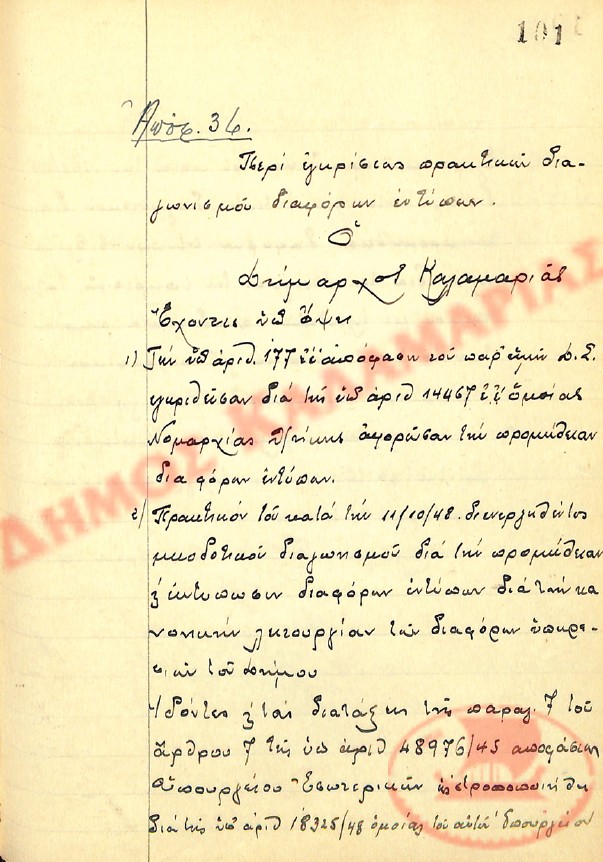 101
Ἀπόφ. 36.
Περὶ ἐγκρίσεως πρακτικῶν δια-
γωνισμοῦ διαφόρων ἐντύπων.
Ὁ
Δήμαρχος Καλαμαριᾶς
Ἔχοντες ὑπ' ὄψει
1) Τὴν ὑπ' ἀριθ. 177 ἀπόφασιν τοῦ παρ' ἡμῖν Δ.Σ.
ἐγκριθεῖσαν διὰ τῆς ὑπ' ἀριθ 14467 ὁμοίας
Νομαρχίας Θ/νίκης ἀφορῶσαν τὴν προμήθειαν
διαφόρων ἐντύπων.
2) Πρακτικὸν τοῦ κατὰ τὴν 11/10/48 διενεργηθέντος
μειοδοτικοῦ διαγωνισμοῦ διὰ τὴν προμήθειαν
ἐκτύπωσιν διαφόρων ἐντύπων διὰ τὴν κα
νονικὴν λειτουργίαν τῶν διαφόρων ὑπηρε-
σιῶν τοῦ Δήμου
Ἰδόντες τὰς διατάξεις τῆς παραγ. 7 τοῦ
ἄρθρου 7 τῆς ὑπ' ἀριθ 48976/45 ἀποφάσεως
Ὑπουργείου Ἐσωτερικῶν ὡς ἐτροποποιήθη
διὰ τῆς ὑπ' ἀριθ 18325/48 ὁμοίας τοῦ αὐτοῦ Ὑπουργείου
ΔΗΜΟΣ ΚΑΛΑΜΑΡΙΑΣ